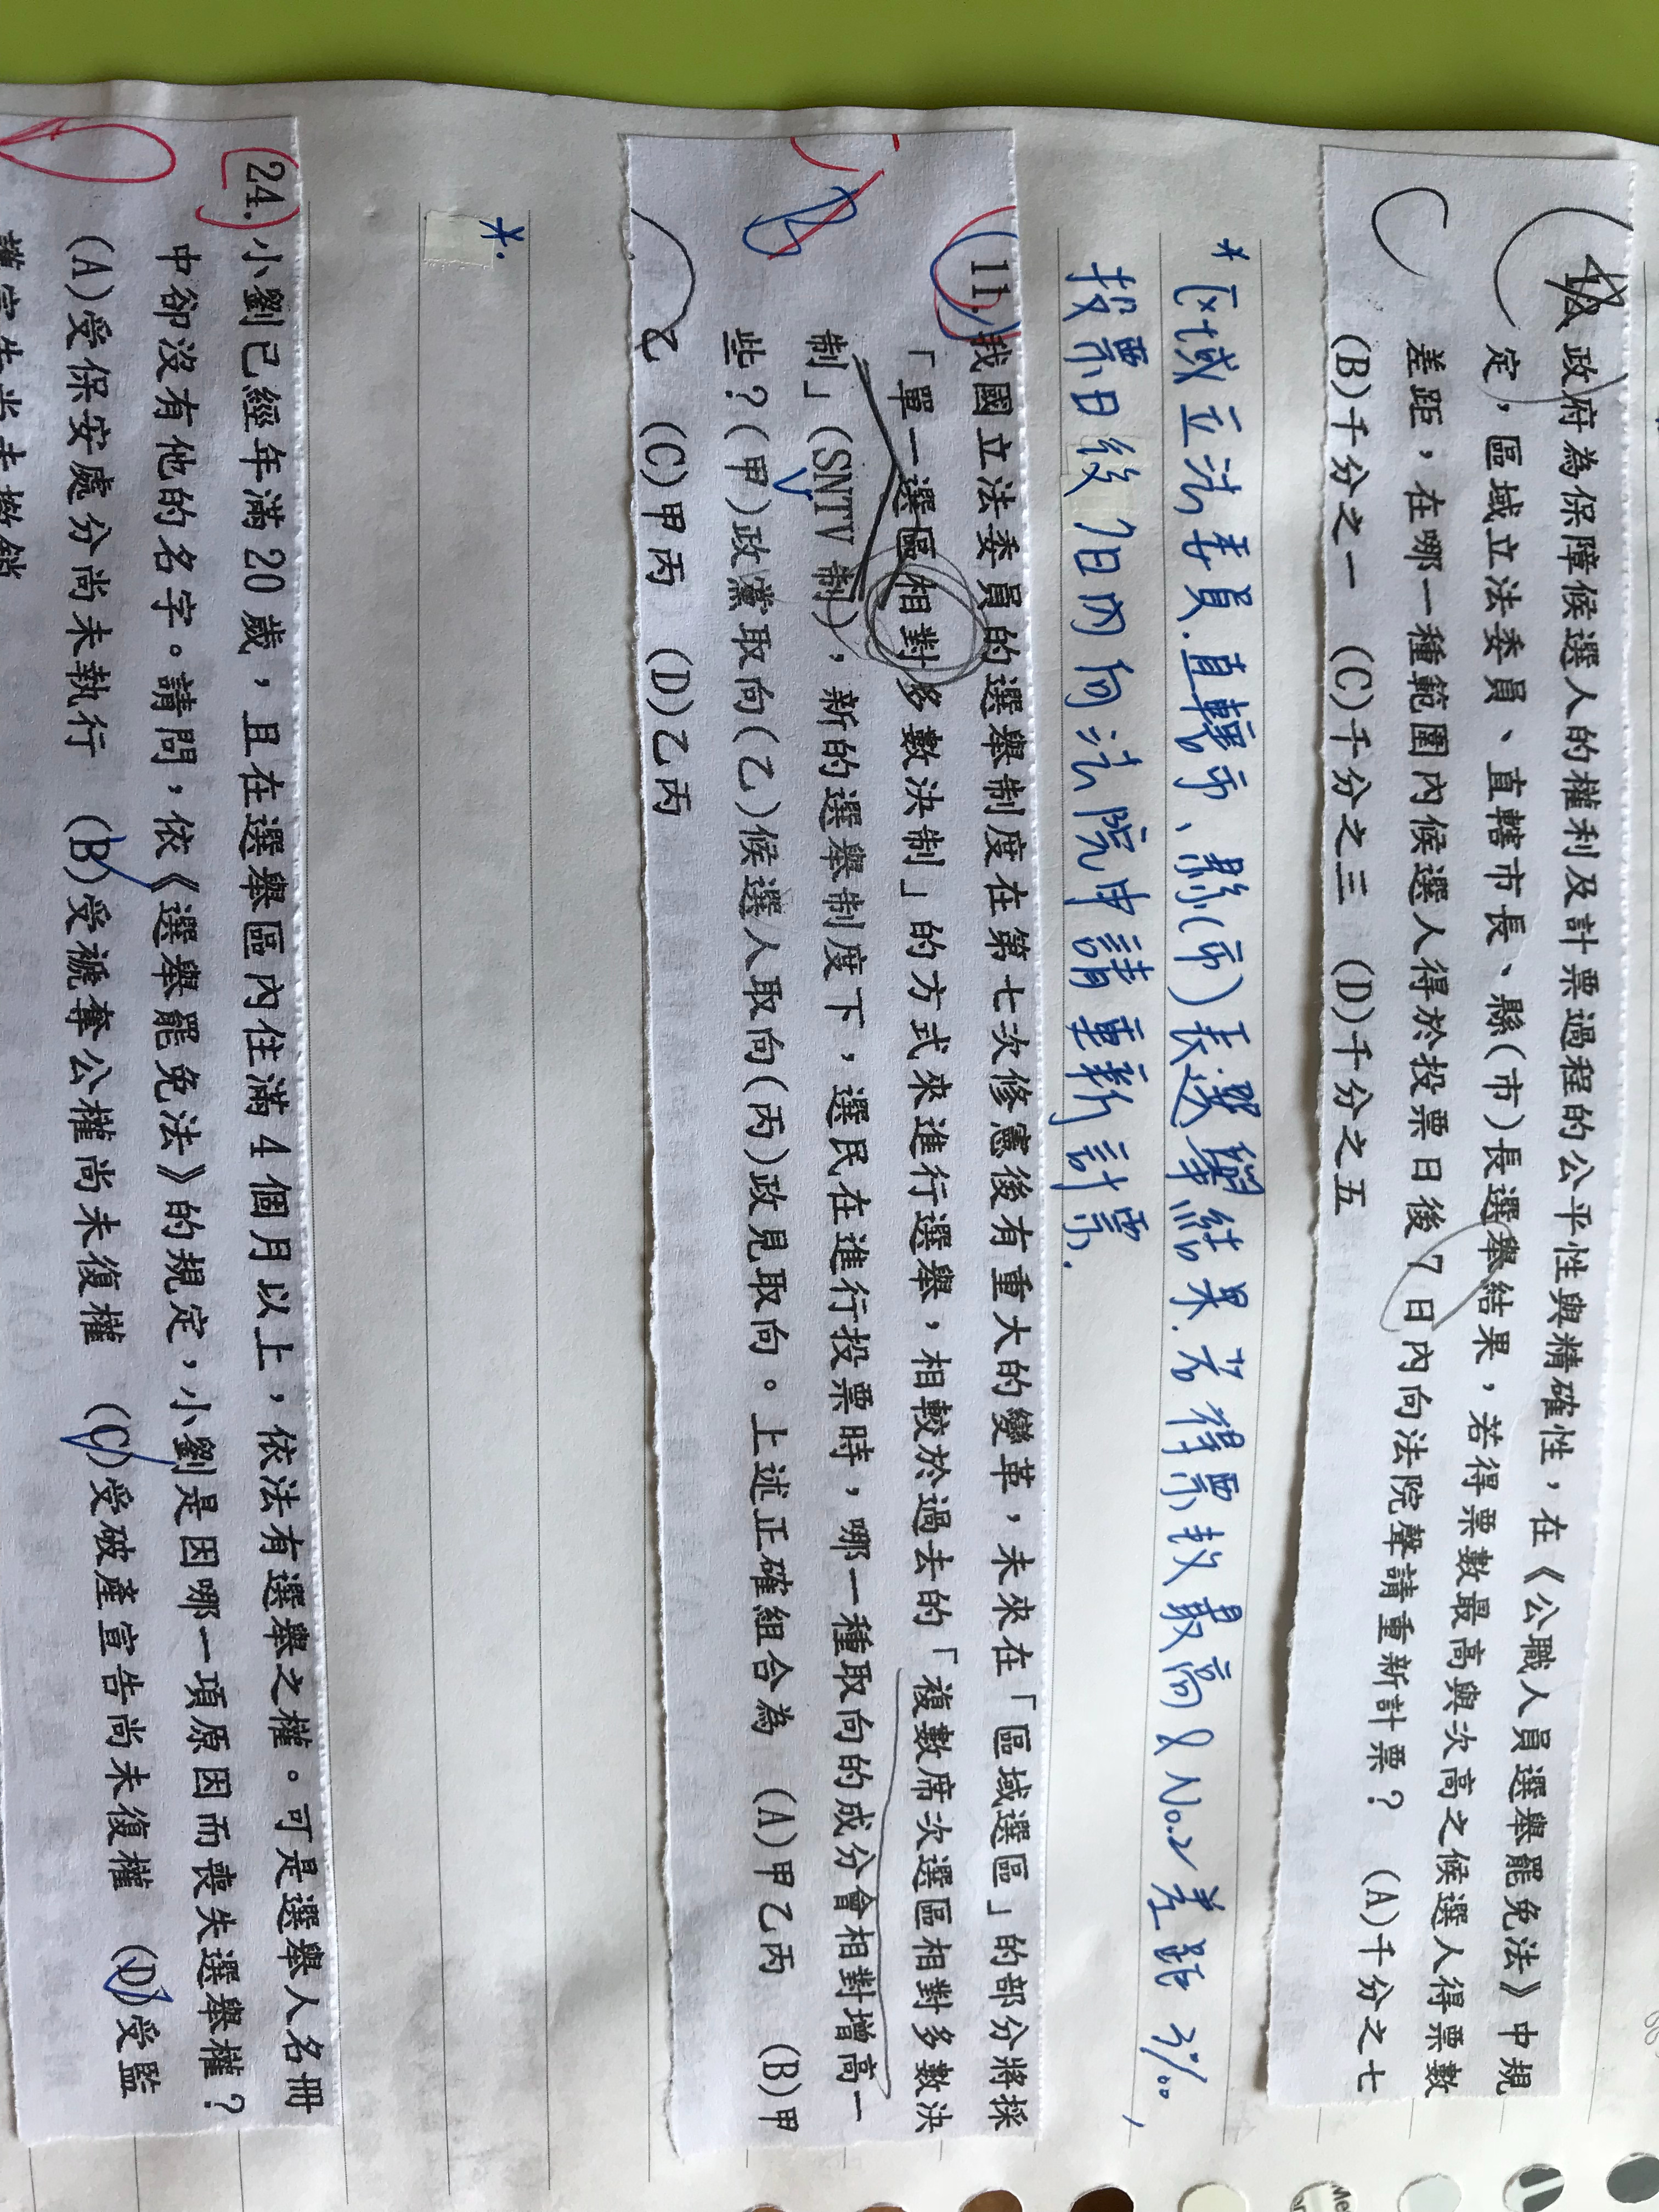 政府為保障候選人的權利及計票過程的公平性與精確性，在《公職人員選舉罷免法》中規
定，區域立法委員、直轄市長、縣(市)長選舉結果，若得票數最高與次高之候選人得票數
差距，在哪一種範圍內候選人得於投票日後7日內向法院聲請重新計票？ (A)千分之七
(B)千分之一 (C)千分之三 (D)千分之五
C
* 区域立法委員.直轄市、縣(市)長選舉結果.若得票數最高與No.2差距3‰,
投票日後7日內向法院申請重新計票.
11.我國立法委員的選舉制度在第七次修憲後有重大的變革，未來在「區域選區」的部分將採
「單一選區相對多數決制」的方式來進行選舉，相較於過去的「複數席次選區相對多數決
制」(SNTV 制)，新的選舉制度下，選民在進行投票時，哪一種取向的成分會相對增高一
些？(甲)政黨取向(乙)候選人取向(丙)政見取向。上述正確組合為 (A)甲乙丙 (B)甲
乙 (C)甲丙 (D)乙丙
*.
24.小劉已經年滿 20 歲，且在選舉區內住滿 4 個月以上，依法有選舉之權。可是選舉人名冊
中卻沒有他的名字。請問，依《選舉罷免法》的規定，小劉是因哪一項原因而喪失選舉權？
(A)受保安處分尚未執行 (B)受褫奪公權尚未復權 (C)受破產宣告尚未復權 (D)受監
護宣告尚未撤銷